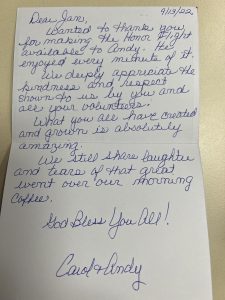 9/13/22
Dear Jan,
Wanted to thank you
for making the Honor Flight
available to Andy. He
enjoyed every minute of it.
We deeply appreciate the
kindness and respect
shown to us by you and
all your volunteers.
What you all have created
and grown is absolutely
amazing.
We still share laughter
and tears of that great
went over our morning
coffee.
God Bless You All!
Carol & Andy